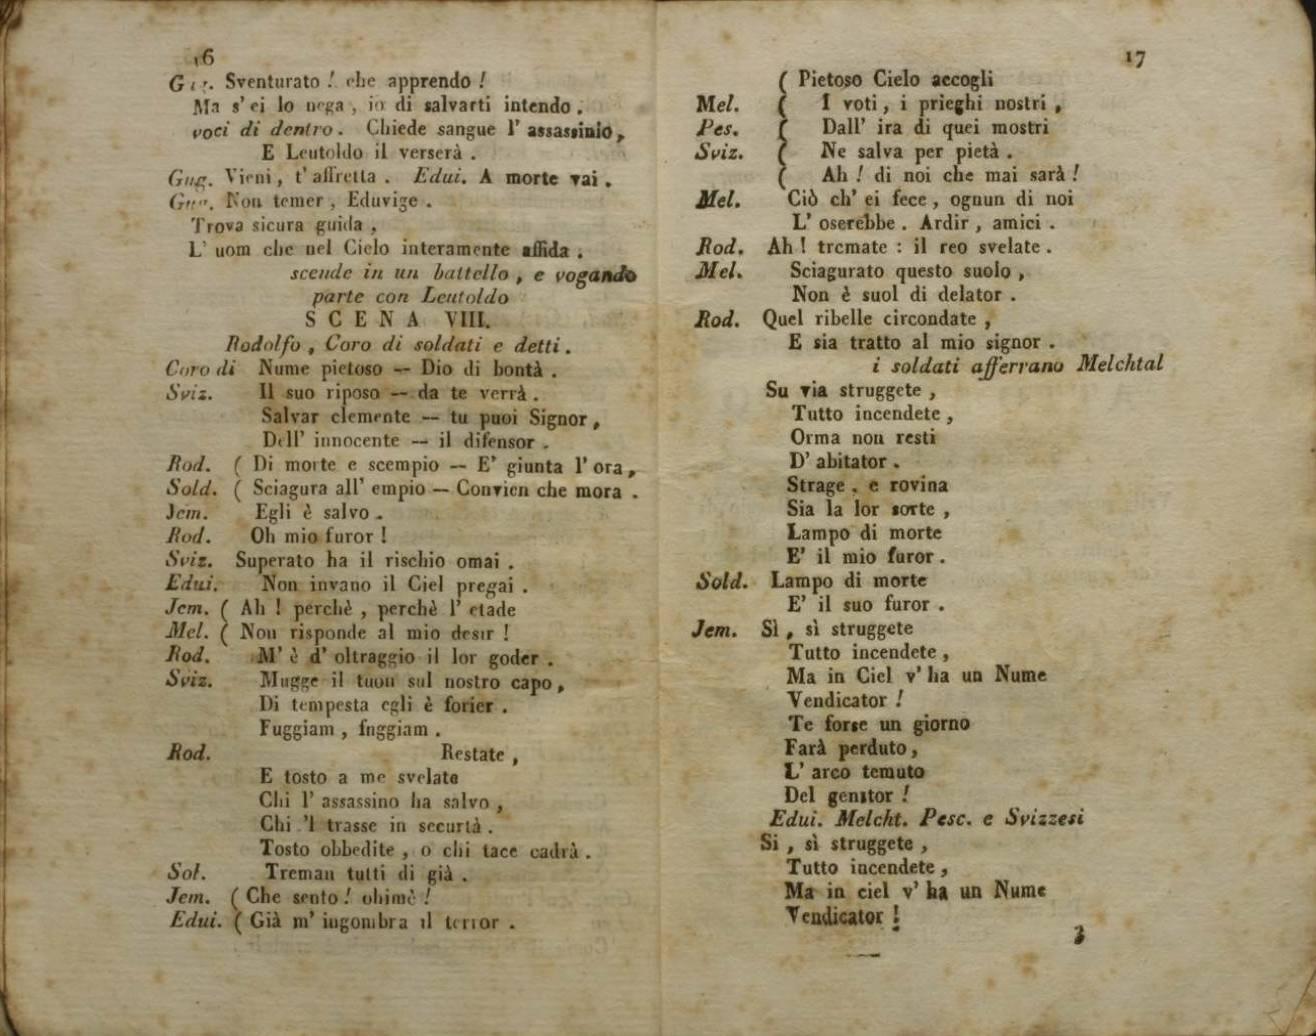 16
Gug. Sventurato ! che apprendo !
Ma s' ei lo nega , io di salvarti intendo .
voci di dentro . Chiede sangue l' assassinio ,
E Leutoldo il verserà .
Gug. Vieni , t' affretta . Edui. A morte vai .
Gug. Non temer , Eduvige .
Trova sicura guida ,
L' uom che nel Cielo interamente affida .
scende in un battello , e vogando
parte con Leutoldo
SCENA VIII.
Rodolfo , Coro di soldati e detti .
Coro di Nume pietoso — Dio di bontà .
Sviz. Il suo riposo — da te verrà .
Salvar clemente — tu puoi Signor ,
Dell' innocente — il difensor .
Rod. ( Di morte e scempio — E' giunta l' ora ,
Sold. ( Sciagura all' empio — Convien che mora .
Jem. Egli è salvo .
Rod. Oh mio furor !
Sviz. Superato ha il rischio omai .
Edui. Non invano il Ciel pregai .
Jem. ( Ah ! perchè , perchè l' etade
Mel. ( Non risponde al mio desir !
Rod. M' è d' oltraggio il lor goder .
Sviz. Mugge il tuon sul nostro capo ,
Di tempesta egli è forier .
Fuggiam , fuggiam .
Rod. Restate ,
E tosto a me svelate
Chi l' assassino ha salvo ,
Chi 'l trasse in securtà .
Tosto obbedite , o chi tace cadrà .
Sol. Treman tutti di già .
Jem. ( Che sento ! ohimè !
Edui. ( Già m' ingombra il terror .
17
( Pietoso Cielo accogli
Mel. ( I voti , i prieghi nostri ,
Pes. ( Dall' ira di quei mostri
Sviz. ( Ne salva per pietà .
( Ah ! di noi che mai sarà !
Mel. Ciò ch' ei fece , ognun di noi
L' oserebbe . Ardir , amici .
Rod. Ah ! tremate : il reo svelate .
Mel. Sciagurato questo suolo ,
Non è suol di delator .
Rod. Quel ribelle circondate ,
E sia tratto al mio signor .
i soldati afferrano Melchtal
Su via struggete ,
Tutto incendete ,
Orma non resti
D' abitator .
Strage . e rovina
Sia la lor sorte ,
Lampo di morte
E' il mio furor .
Sold. Lampo di morte
E' il suo furor .
Jem. Sì , sì struggete
Tutto incendete ,
Ma in Ciel v' ha un Nume
Vendicator !
Te forse un giorno
Farà perduto ,
L' arco temuto
Del genitor !
Edui. Melcht. Pesc. e Svizzesi
Si , sì struggete ,
Tutto incendete ,
Ma in ciel v' ha un Nume
Vendicator !
3